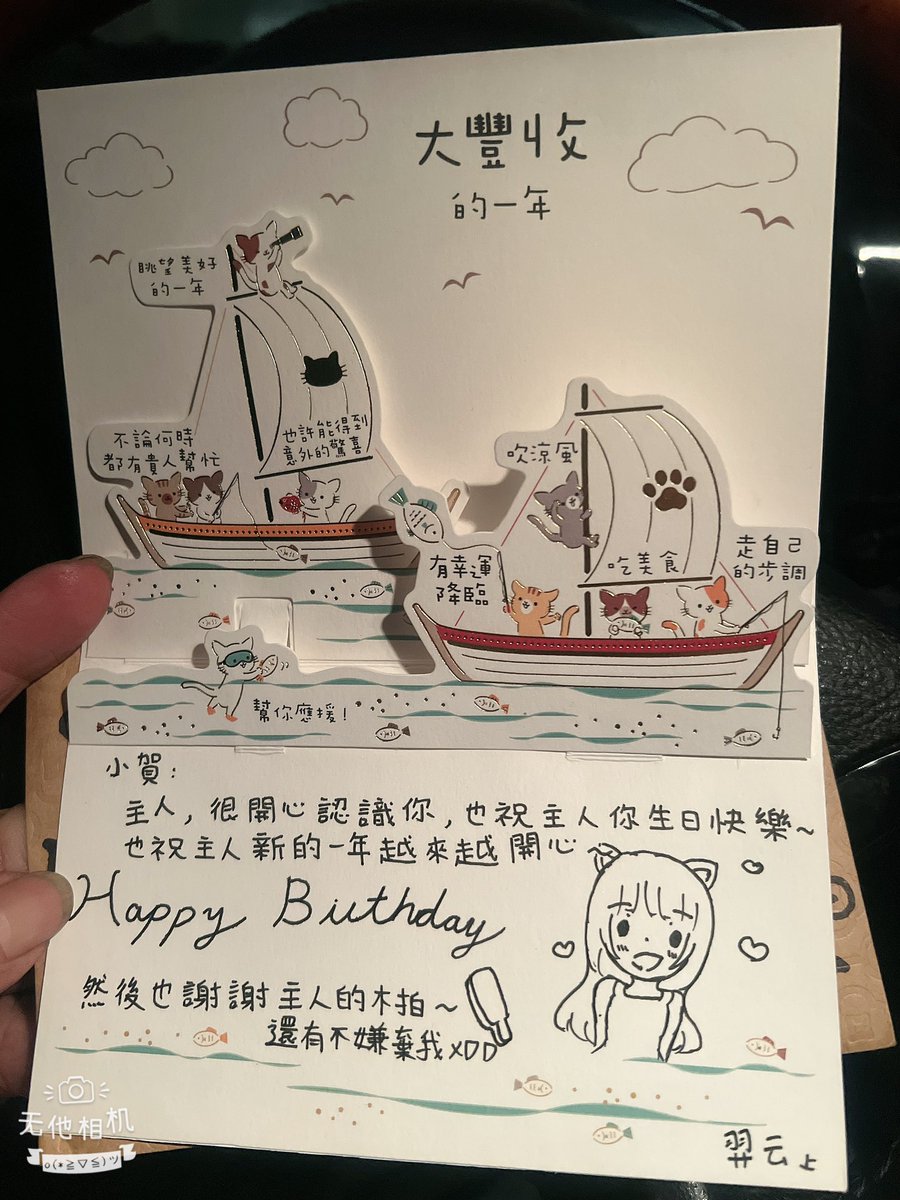 大豐收
的一年
眺望美好
的一年
不論何時
都有貴人幫忙
也許能得到
意外的驚喜
吹涼風
有幸運
降臨
吃美食
走自己
的步調
幫你應援!
小賀:
主人,很開心認識你,也祝主人你生日快樂~
也祝主人新的一年越來越開心~
Happy Buthday
然後也謝謝主人的木拍~
還有不嫌棄我XDD
羿云上
无他相机
o(*≧▽≦)ツ